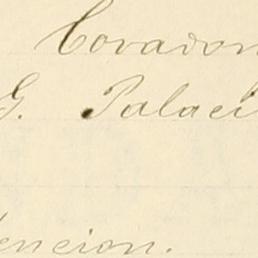 Covadon
G. Palaci
encion.